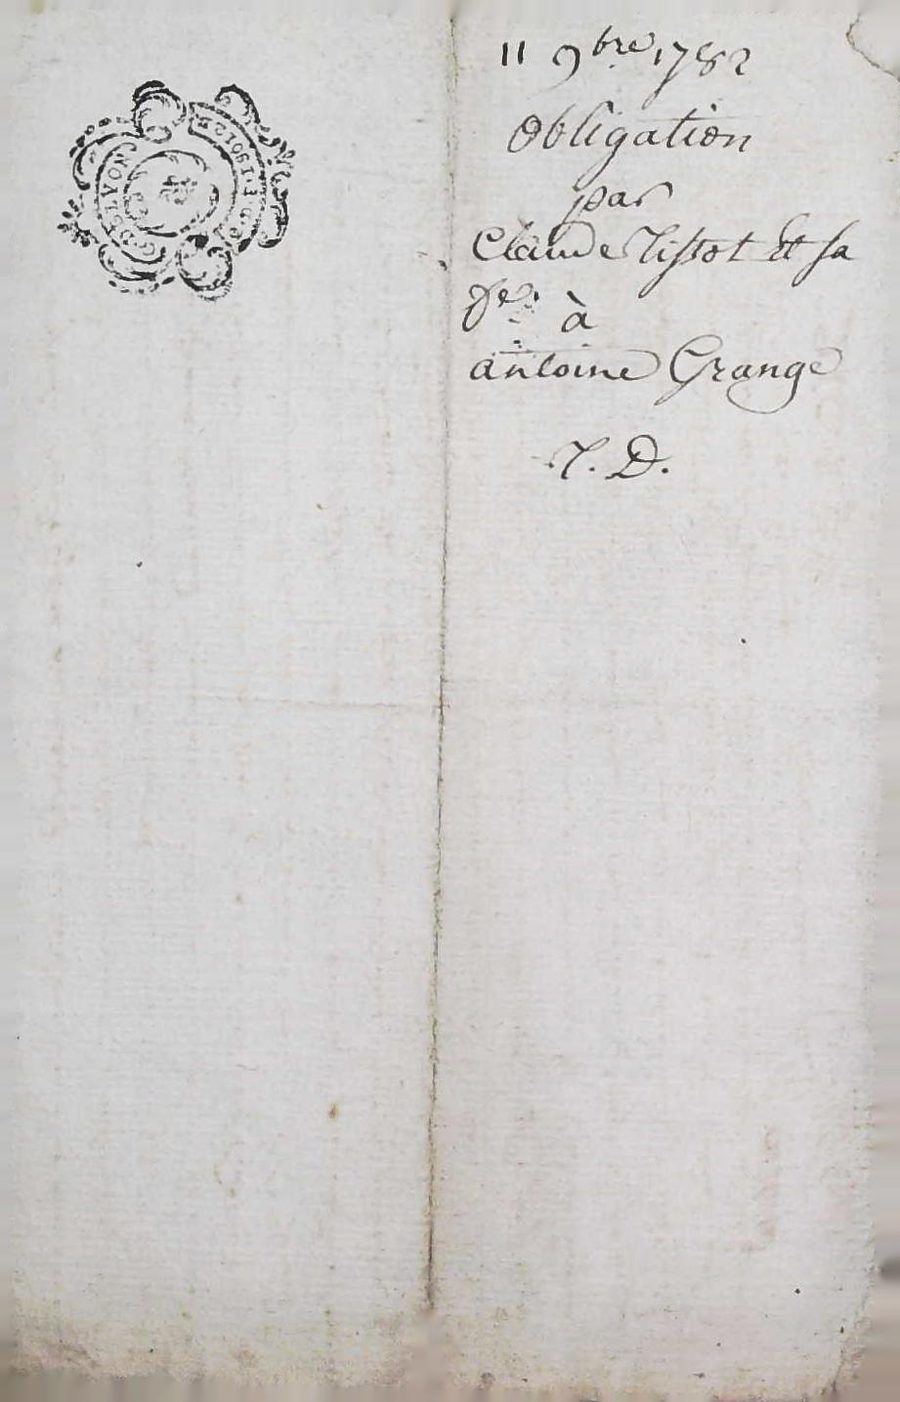 11 9bre 1782
Obligation
par
Claude Tissot Et sa
fe à
antoine Grange
T. D.